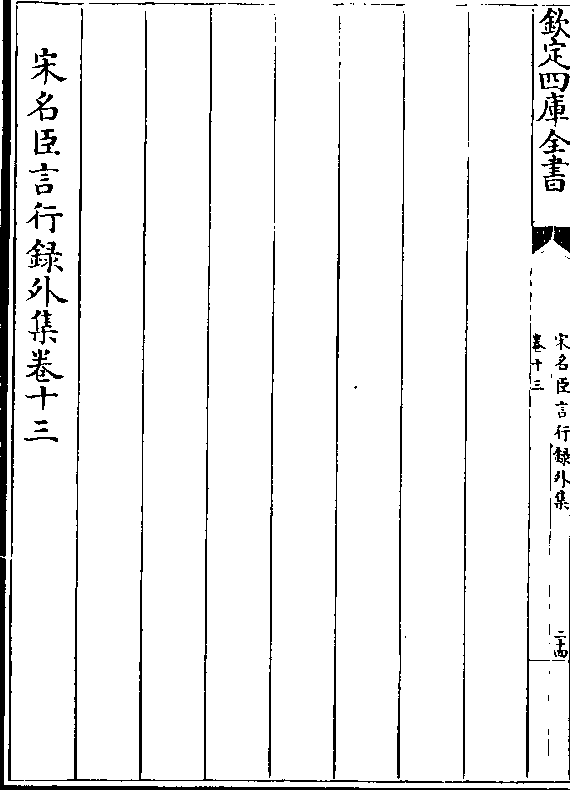 欽定四庫全書
宋名臣言行録外集
卷十三
二十四
宋名臣言行録外集卷十三